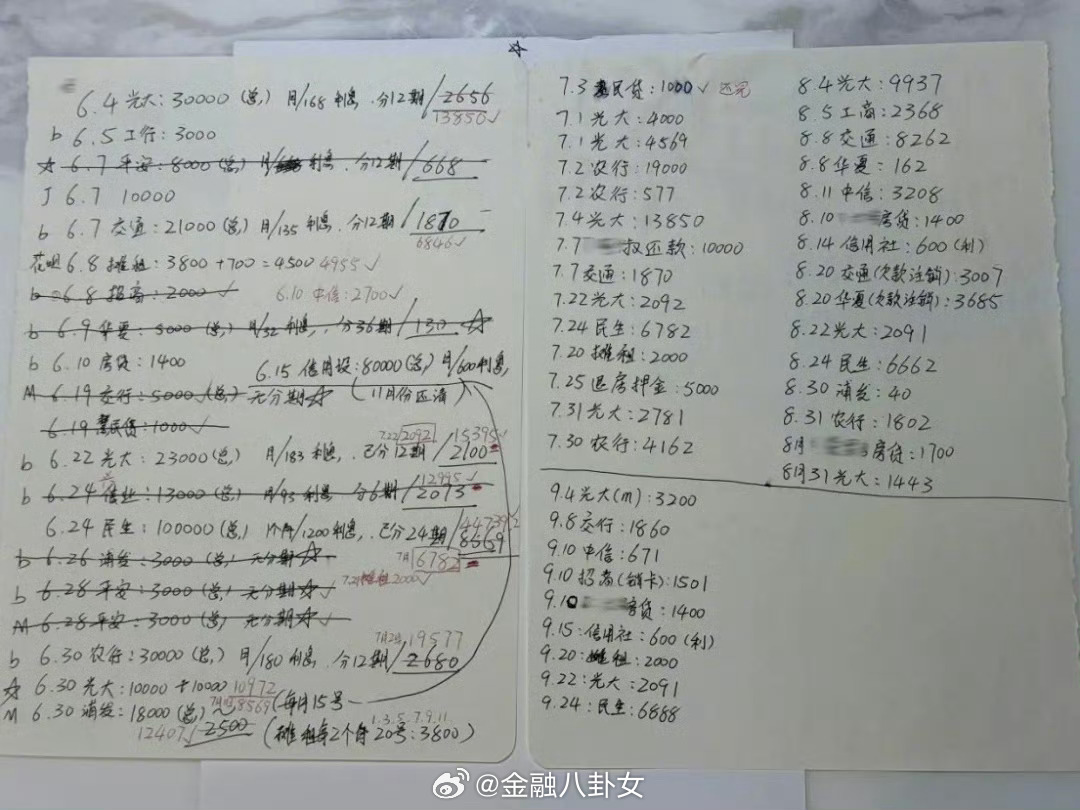 6.4 光大：30000（总） 月/168 利息，分12期/2656
13850✓
b 6.5 工行：3000
☆ 6.7 平安：8000（总） 月/ 利息，分12期/668
J 6.7 10000
b 6.7 交通：21000（总） 月/135 利息，分12期/1870
6846✓
花呗 6.8 摊租：3800+700=4500 4955✓
b 6.8 招商：2000✓
6.10 中信：2700✓
b 6.9 华夏：5000（总）月/52 利息，分36期/130 ☆
b 6.10 房贷：1400
6.15 信用设：80000（总）月/600利息，
M 6.19 交行：5000（总）无分期☆（11月份还清）
6.19 惠民贷：1000✓
7.22 2092 15395✓
b 6.22 光大：23000（总） 月/183 利息，已分12期/2100
12995✓
b 6.24 兴业：13000（总）月/93 利息 分6期/2073
44739
6.24 民生：100000（总）1个月/1200利息，已分24期/8669
7月 6782
b 6.26 浦发：3000（总）无分期☆
7.21摊租2000✓
b 6.28 平安：3000（总）无分期☆✓
M 6.28 平安：3000（总）无分期☆✓
7月2号 19577
b 6.30 农行：30000（总）月/180 利息，分12期/2680
☆ 6.30 光大：10000+10000 10972
8569（每月15号
M 6.30 浦发：18000（总）
1.3.5.7.9.11
12407✓ 2500（摊租每2个月20号：3800）
7.3 惠民贷：1000✓ 还完
7.1 光大：4000
7.1 光大：4569
7.2 农行：19000
7.2 农行：577
7.4 光大：13850
7.7 叔还款：10000
7.7 交通：1870
7.22 光大：2092
7.24 民生：6782
7.20 摊租：2000
7.25 退房押金：5000
7.31 光大：2781
7.30 农行：4162
8.4 光大：9937
8.5 工商：2368
8.8 交通：8262
8.8 华夏：162
8.11 中信：3208
8.10 房贷：1400
8.14 信用社：600（利）
8.20 交通（欠款注销）：3007
8.20 华夏（欠款注销）：3685
8.22 光大：2091
8.24 民生：6662
8.30 浦发：40
8.31 农行：1802
8月 房贷：1700
8月31 光大：1443
9.4 光大（m）：3200
9.8 交行：1860
9.10 中信：671
9.10 招商（销卡）：1501
9.10 房贷：1400
9.15：信用社：600（利）
9.20：摊租：2000
9.22：光大：2091
9.24：民生：6888
@金融八卦女